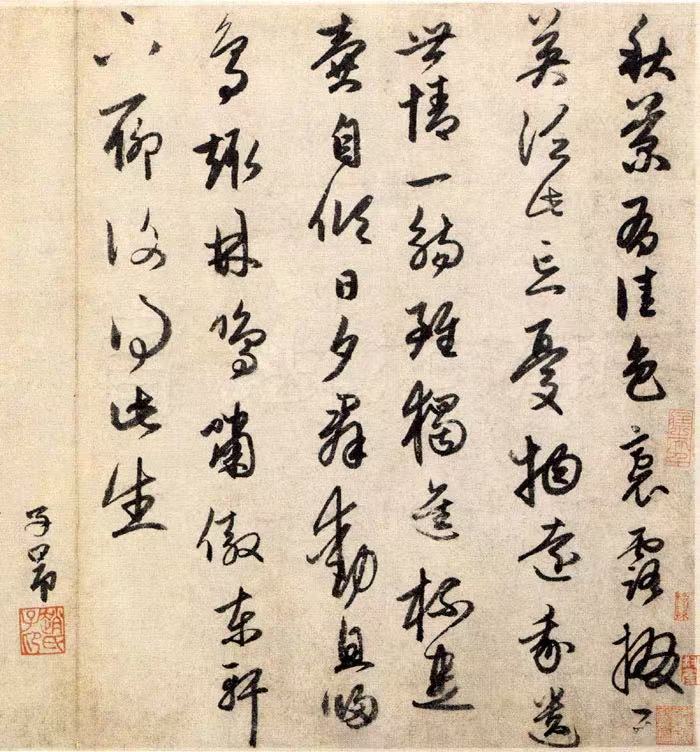 秋菊有佳色裛露掇其
英泛此忘憂物遠我遺
世情一觴雖獨進杯盡
壺自傾日夕羣動息歸
鳥趨林鳴嘯傲東軒
下聊復得此生
子昂
趙氏子昂